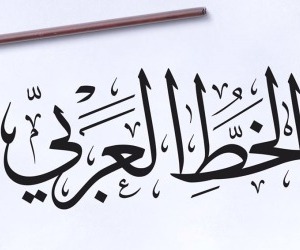 الخطِّ العربيّ